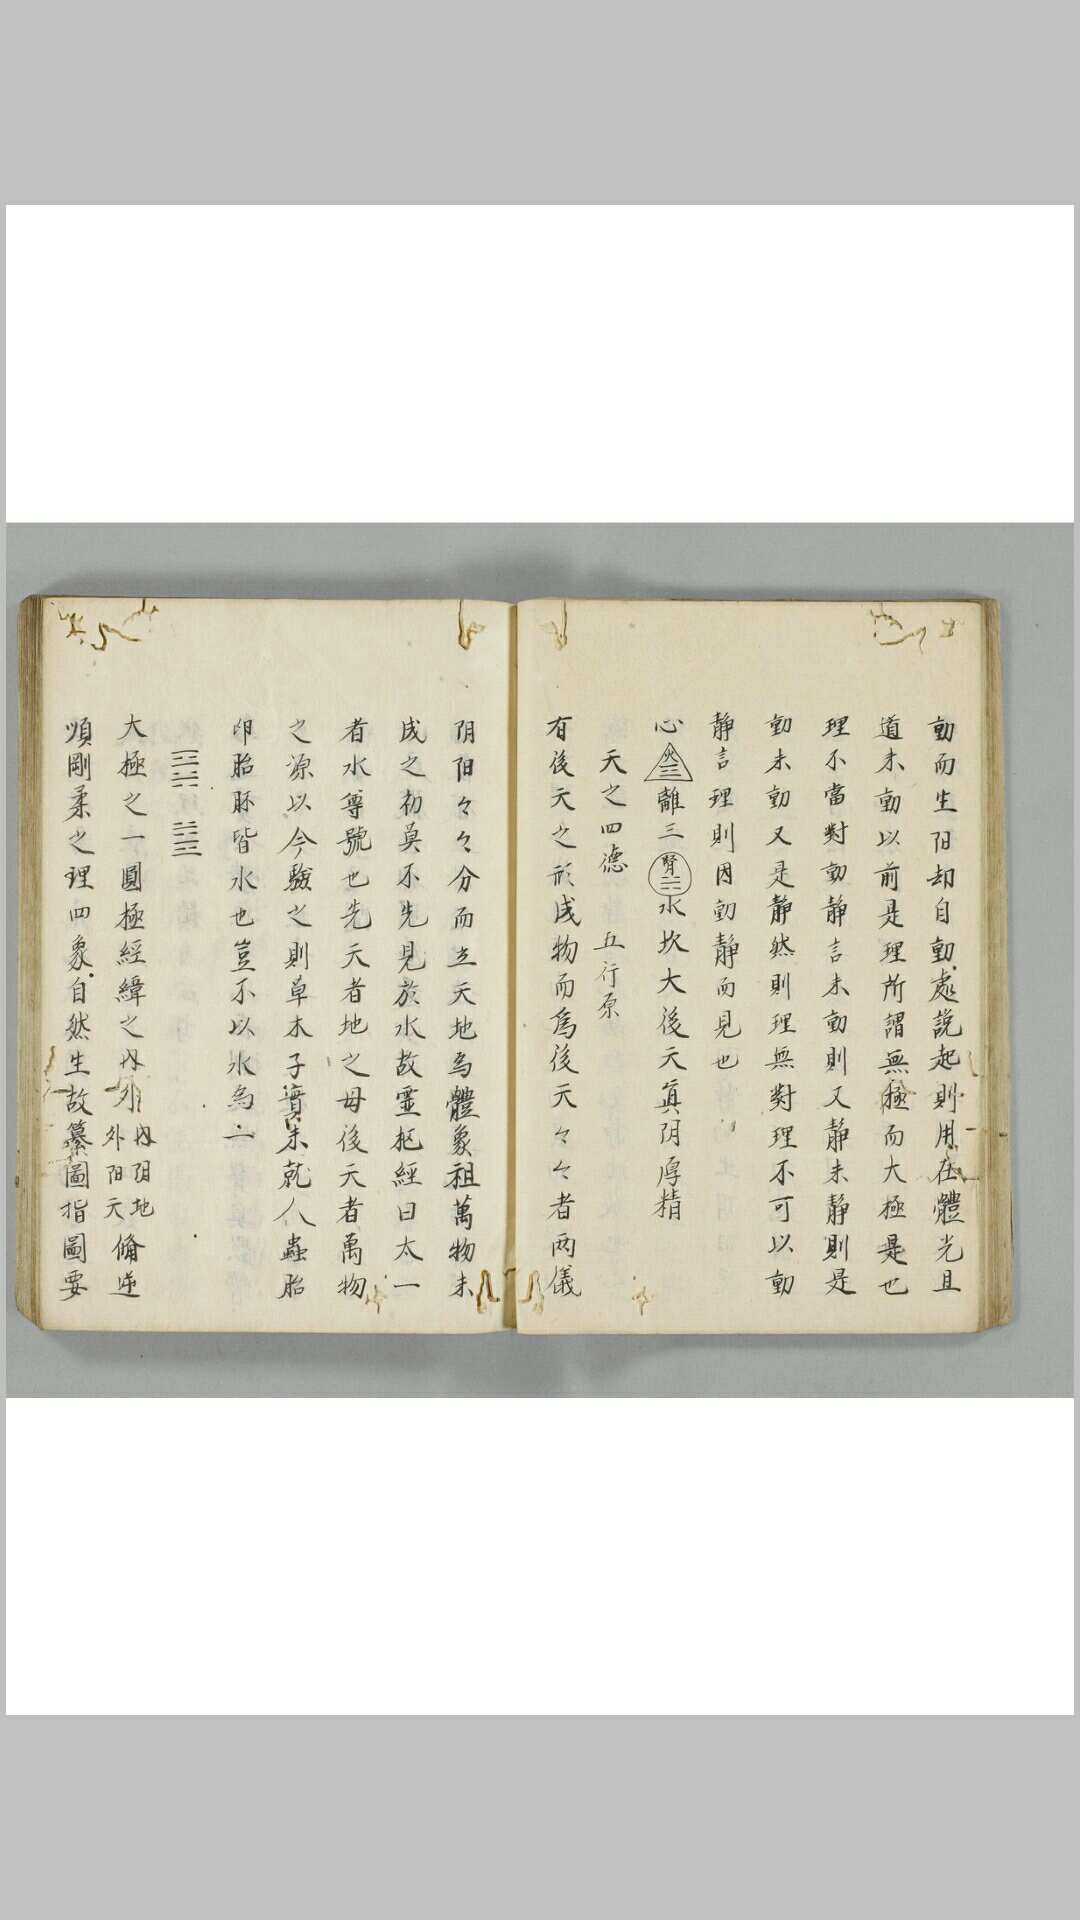 動而生阳却自動處説起則用在體光且
道未動以前是理所謂無極而大極是也
理不當對動静言未動則又静未静則是
動未動又是静然則理無對理不可以動
静言理則因動静而見也
心火☲離三腎☵水坎大後天真阴厚精
天之四德 五行原
有後天之形成物而爲後天々々者两儀
阴阳々々分而立天地爲體象祖萬物未
成之初莫不先見於水故靈枢經曰太一
者水尊號也先天者地之母後天者萬物
之源以今驗之則草木子實未就人蟲胎
卵胎胚皆水也豈不以水爲一
大極之一圓極經緯之内外内阴地外阳天脩逆
順剛柔之理四象自然生故纂圖指圖要